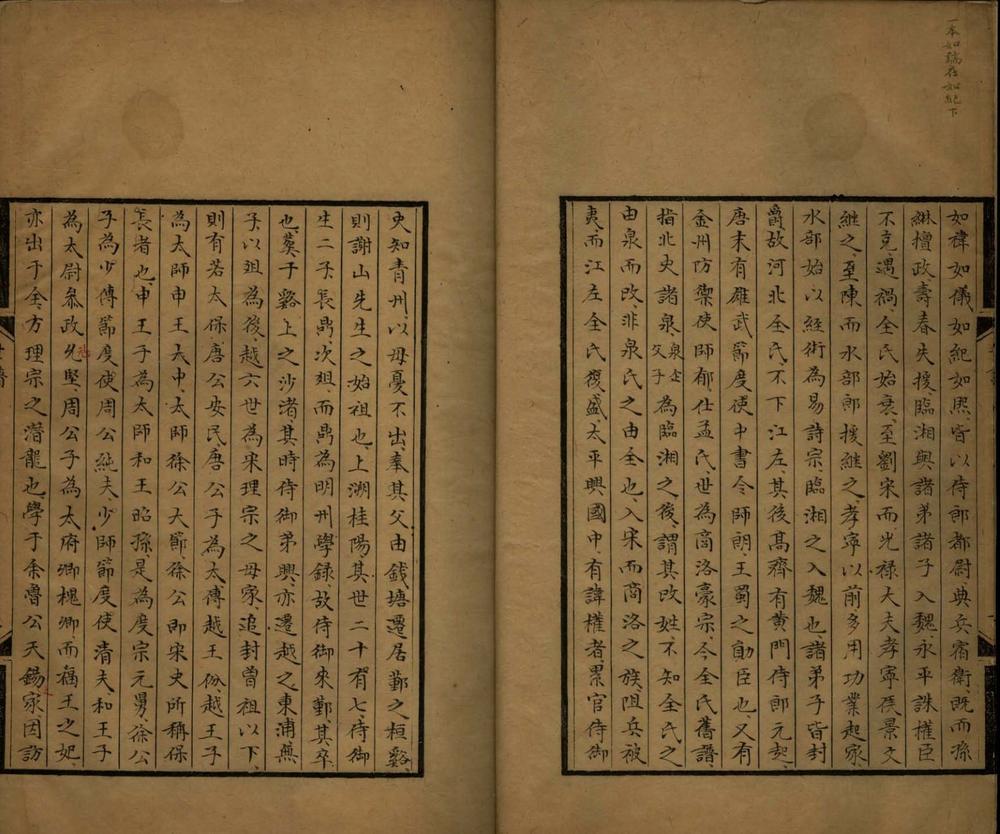 一本如瑞在如紀下
如禕如儀如紀如熙皆以侍郎都尉典兵宿衛既而孫
綝擅政壽春失援臨湘與諸弟諸子入魏永平誅權臣
不克遇禍全氏始衰至劉宋而光祿大夫孝寧侯景文
継之至陳而水部郎援継之孝寧以前多用功業起家
水部始以経術為易詩宗臨湘之入魏也諸弟子皆封
爵故河北全氏不下江左其後髙齊有黄門侍郎元起
唐末有雄武節度使中書令師朗王蜀之勛臣也又有
金州防禦使師郁仕孟氏世為商洛豪宗今全氏舊譜
指北史諸泉泉企父子為臨湘之後謂其改姓不知全氏之
由泉而改非泉氏之由全也入宋而商洛之族阻兵被
夷而江左全氏復盛太平興國中有諱權者累官侍御
史知青州以母憂不出奉其父由錢塘遷居鄞之桓谿
則謝山先生之始祖也上溯桂陽其世二十有七侍御
生二子長鼎次爼而鼎為明州學録故侍御來鄞其卒
也葬于谿上之沙渚其時侍御弟興亦遷越之東浦無
子以爼為後越六世為宋理宗之母家追封曽祖以下
則有若太保唐公安民唐公子為太傅越王份越王子
為太師申王大中太師徐公大節徐公即宋史所稱保
長者也申王子為太師和王昭孫是為度宗元舅徐公
子為少傅節度使周公純夫少師節度使清夫和王子
為太尉叅政允堅周公子為太府卿槐卿而福王之妃
亦出于全方理宗之潛龍也學于余魯公天錫家因訪